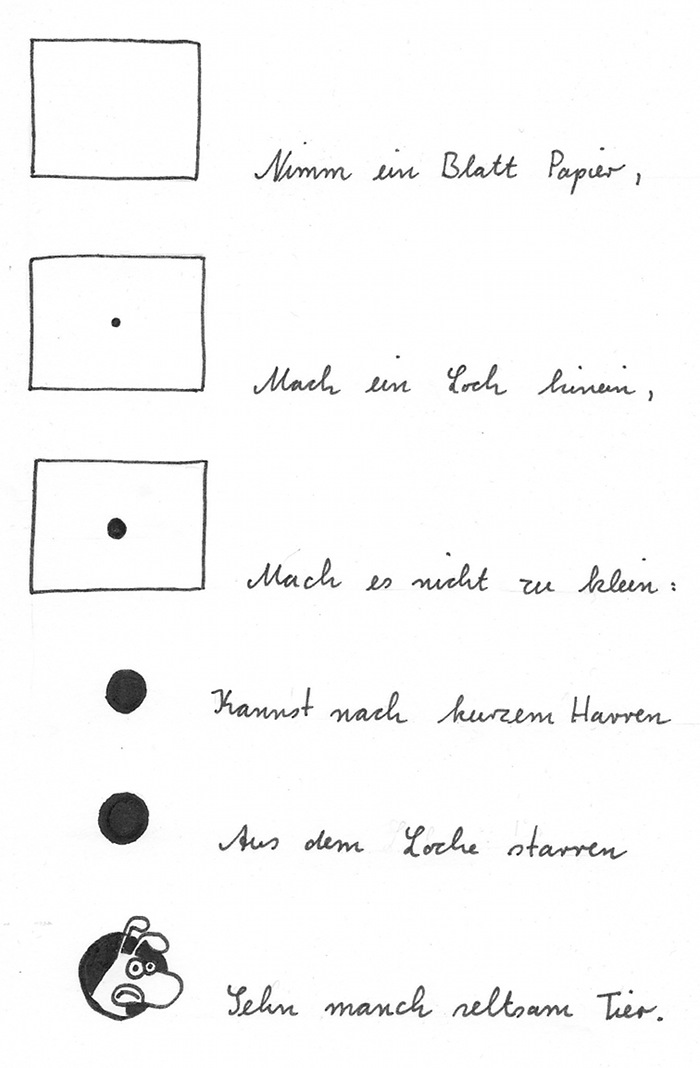 Nimm ein Blatt Papier,
Mach ein Loch hinein,
Mach es nicht zu klein:
Kannst nach kurzem Harren
Aus dem Loche starren
Sehn manch seltsam Tier.